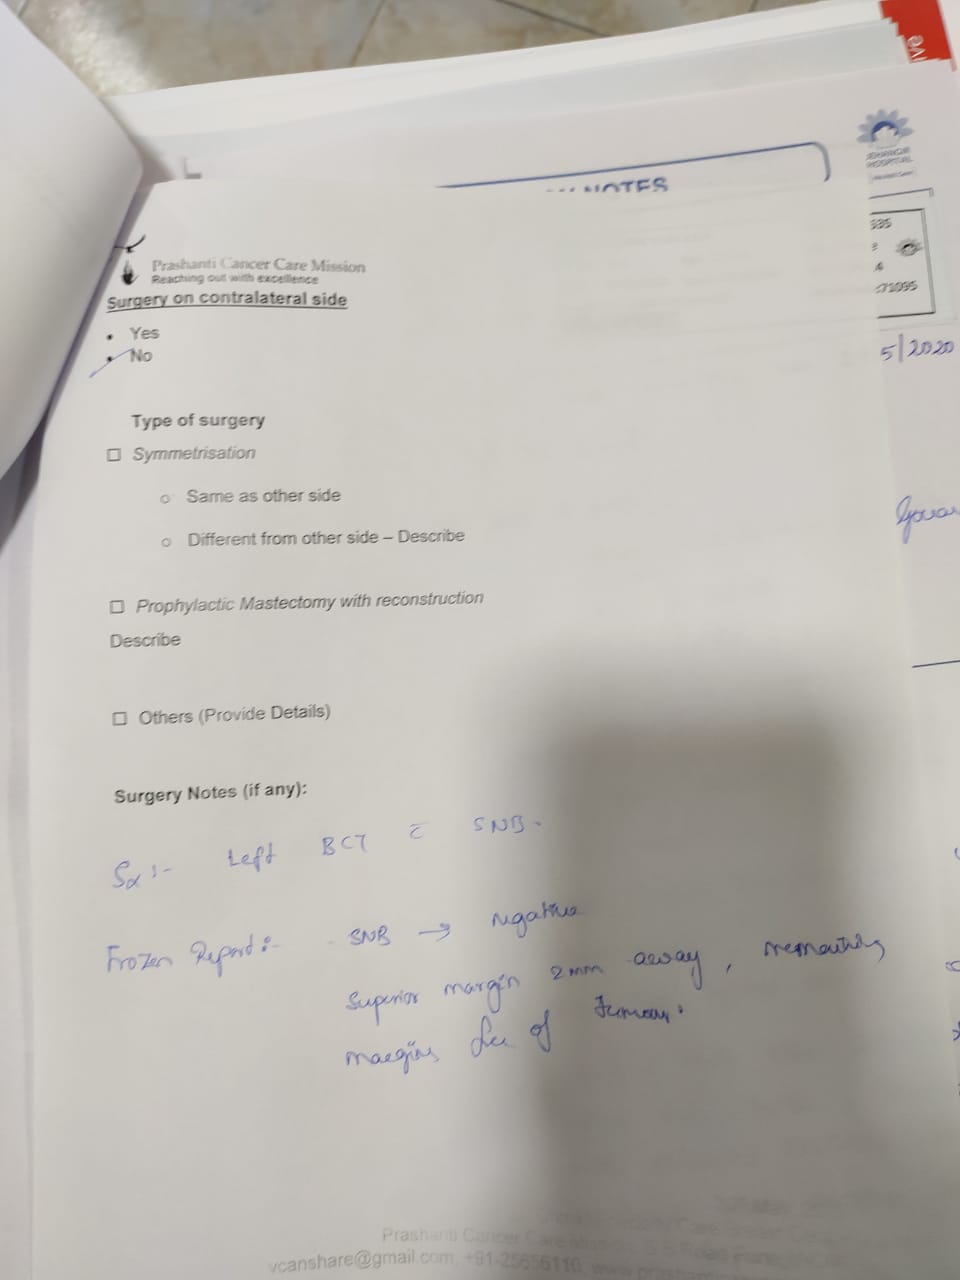 NOTES
JEHANGIR
HOSPITAL
Prashanti Cancer Care Mission
Reaching out with excellence
Surgery on contralateral side
• Yes
• No
5/2020
Type of surgery
☐ Symmetrisation
o Same as other side
o Different from other side – Describe
☐ Prophylactic Mastectomy with reconstruction
Describe
☐ Others (Provide Details)
Surgery Notes (if any):
Sx :- Left BCT c̄ SNB.
Frozen Report:- - SNB → negative
Superior margin 2mm away, remaining
margins free of tumour.
Prashanti Cancer Care
vcanshare@gmail.com, +91-25656110